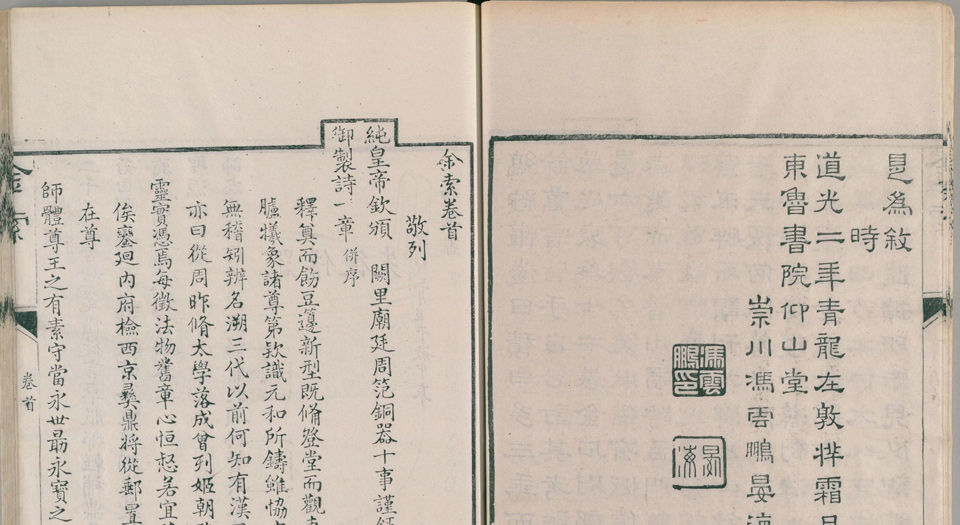 是爲敘
時
道光二年青龍在敦牂霜月
東魯書院仰山堂
崇川馮雲鵬晏海
馮雲鵬印
晏海
金索卷首
敬列
純皇帝欽頒 闕里廟廷周笵銅器十事謹
御製詩一章 併序
釋奠而飭豆籩新型既脩登堂而觀
臚犧象諸尊第欵識元和所鑄雖協
無稽矧辨名溯三代以前何知有漢
亦曰從周昨脩太學落成曾列姬朝
靈實憑焉每徵法物舊章心恒惄若宜
俟鑾廻内府檢西京彝鼎將從郵置
在尊
師體尊王之有素守當永世朂永寶之
金索
卷首